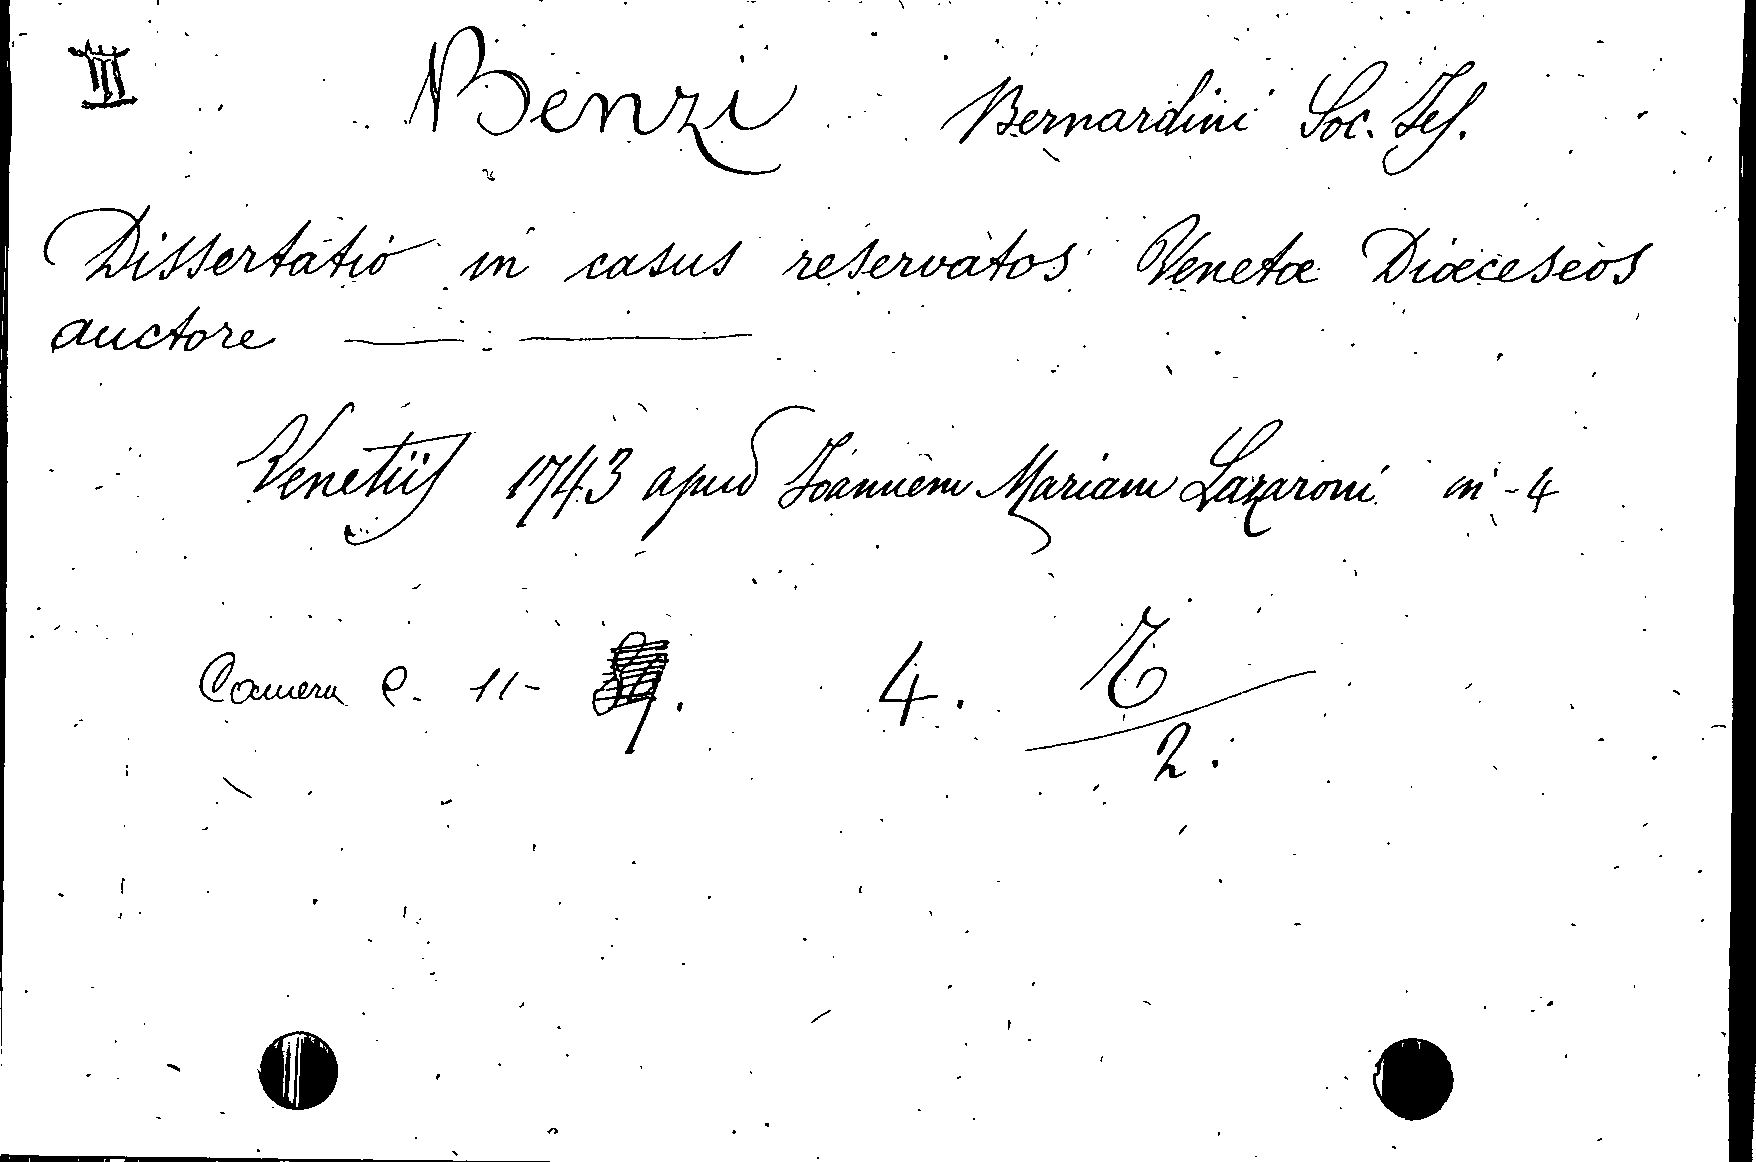 III Benzi Bernardini Soc. Jes.
Dissertatio in casus reservatos Venetæ Diœceseos
auctore ——— - ———
Venetiis 1743 apud Joannem Mariam Lazaroni in-4
Camera C. 11- 4.
2.